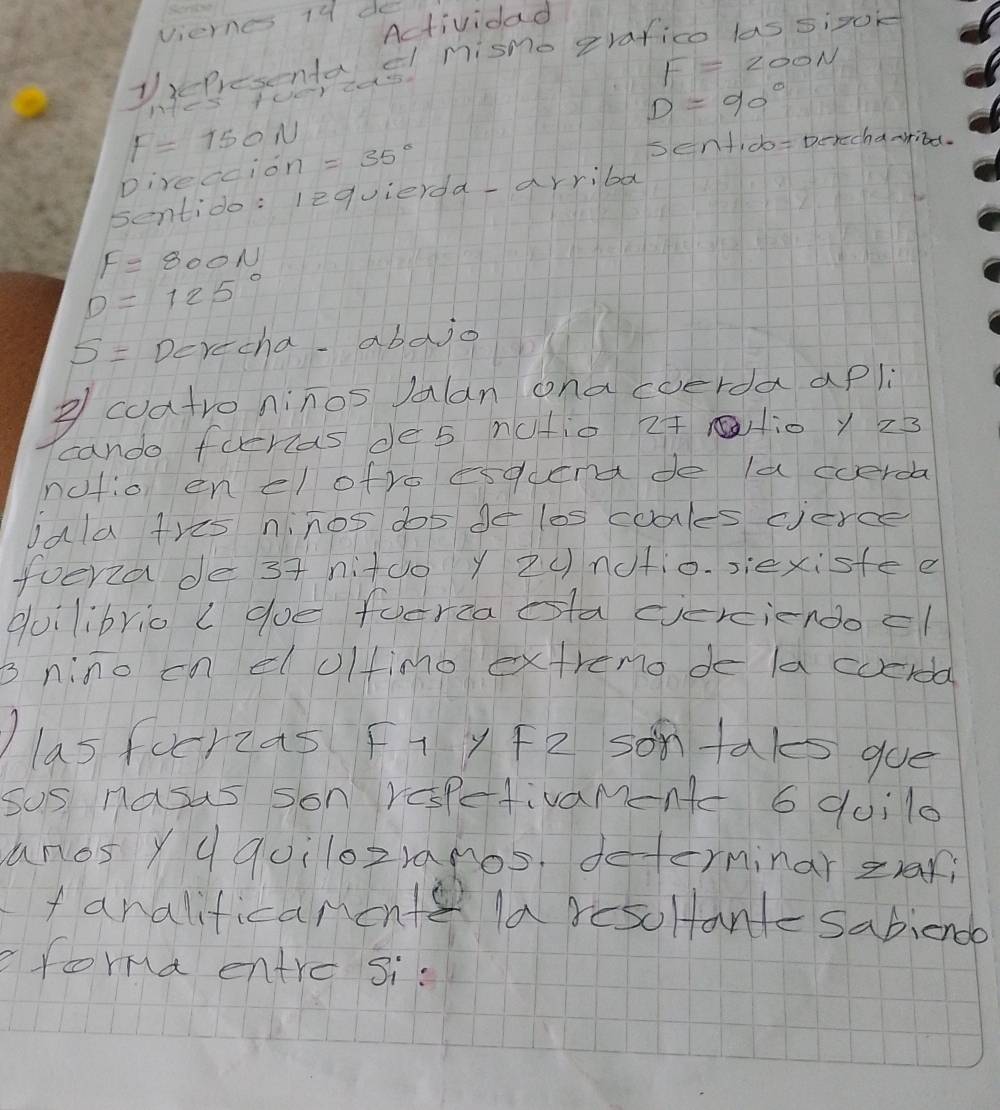 viernes 14 de
Actividad
1) representa el mismo grafico las siguie
ntes fuerzas.
F = 200N
D = 90°
F = 150N
Direccion = 35°
sentido = Derecha arriba.
sentido: izquierda - arriba
F = 800N
D = 125°
S = Derecha - abajo
2) cuatro niños Jalan una cuerda apli
cando fuerzas de 5 nutio 27 nutio y 23
nutio en el otro esquema de la cuerda
jala tres niños dos de los cuales ejerce
fuerza de 37 nituo y 24 nutio. si existe e
quilibrio ¿ que fuerza esta ejerciendo el
3 niño en el ultimo extremo de la cuerda
) las fuerzas F1 y F2 son tales que
sus masas son respetivamente 6 quilo
amos y 4 quilogramos. determinar grafi
y analiticamente la resultante sabiendo
e forma entre si: